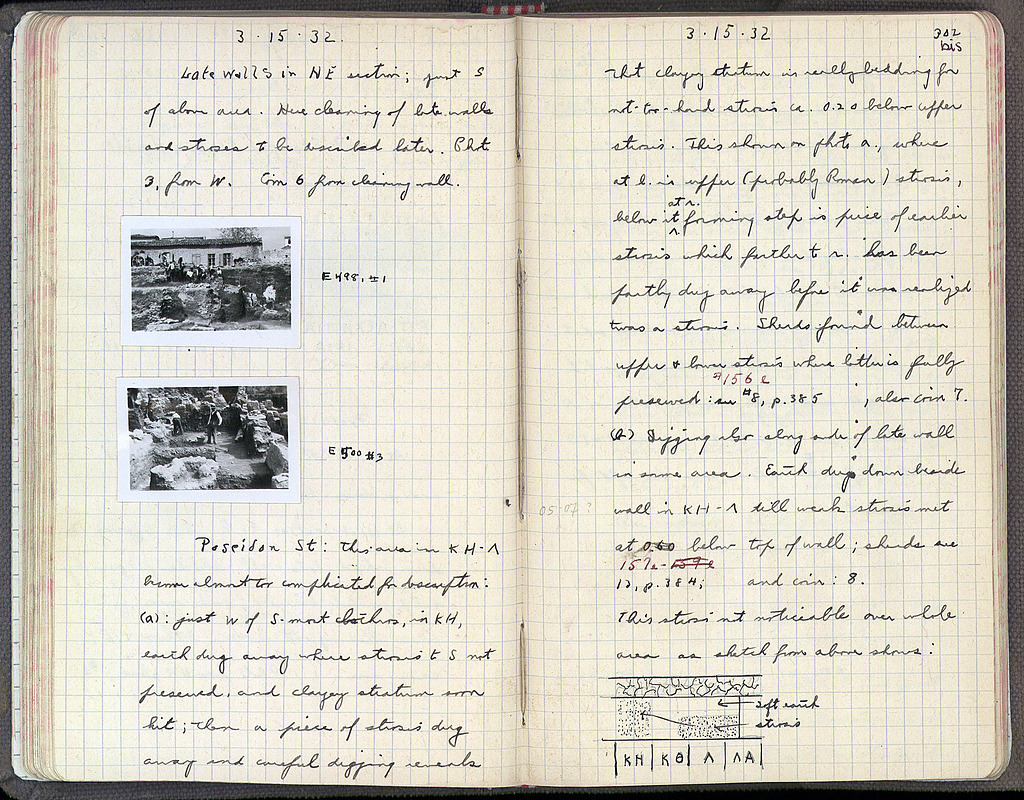 3·15·32.
Late walls in NE section; just S
of above area. Here cleaning of late walls
and stroses to be described later. Phot
3, from W. Coin 6 from cleaning wall.
E498, #1
E500 #3
Poseidon St: this area in ΚΗ-Λ
become almost too complicated for description:
(a): just W of S-most bothros, in ΚΗ,
earth dug away where strosis to S not
preserved, and clayey stratum soon
hit; then a piece of strosis dug
away and careful digging reveals
3·15·32
302
bis
that clayey stratum is really bedding for
not-too-hard strosis ca. 0.20 below upper
strosis. This shown on photo a., where
at l. is upper (probably Roman) strosis,
at r.
below it forming step is piece of earlier
strosis which farther to r. has been
partly dug away before it was realized
twas a strosis. Sherds found between
upper & lower strosis where latter is fully
#156 e
preserved: see #8, p.385 ; also coin 7.
(b) Digging also along side of late wall
in same area. Earth dug down beside
05-07?
wall in ΚΗ-Λ till weak strosis met
at 0.60 below top of wall; sherds see
157e-159e
12, p.384; and coin: 8.
This strosis not noticeable over whole
area as sketch from above shows:
soft earth
strosis
ΚΗ ΚΘ Λ ΛΑ